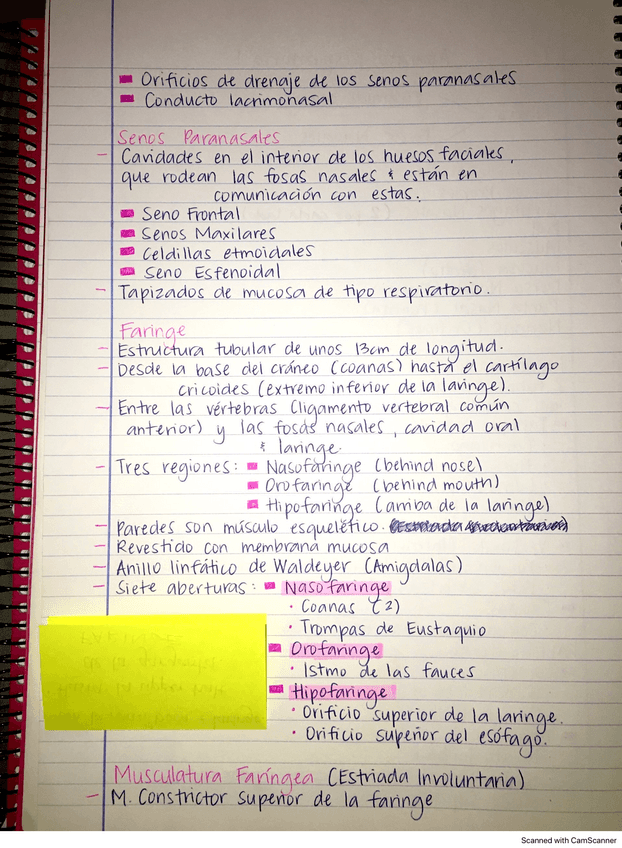 Orificios de drenaje de los senos paranasales
Conducto lacrimonasal
Senos Paranasales
- Cavidades en el interior de los huesos faciales,
que rodean las fosas nasales & están en
comunicación con estas.
Seno Frontal
Senos Maxilares
Celdillas etmoidales
Seno Esfenoidal
- Tapizados de mucosa de tipo respiratorio.
Faringe
- Estructura tubular de unos 13cm de longitud.
- Desde la base del cráneo (coanas) hasta el cartílago
cricoides (extremo inferior de la laringe).
- Entre las vértebras (ligamento vertebral común
anterior) y las fosas nasales, cavidad oral
& laringe.
- Tres regiones: Nasofaringe (behind nose)
Orofaringe (behind mouth)
Hipofaringe (arriba de la laringe)
- Paredes son músculo esquelético.
- Revestido con membrana mucosa
- Anillo linfático de Waldeyer (Amigdalas)
- Siete aberturas: Nasofaringe
· Coanas (2)
· Trompas de Eustaquio
Orofaringe
· Istmo de las fauces
Hipofaringe
· Orificio superior de la laringe.
· Orificio superior del esófago.
Musculatura Faríngea (Estriada Involuntaria)
- M. Constrictor superior de la faringe
Scanned with CamScanner